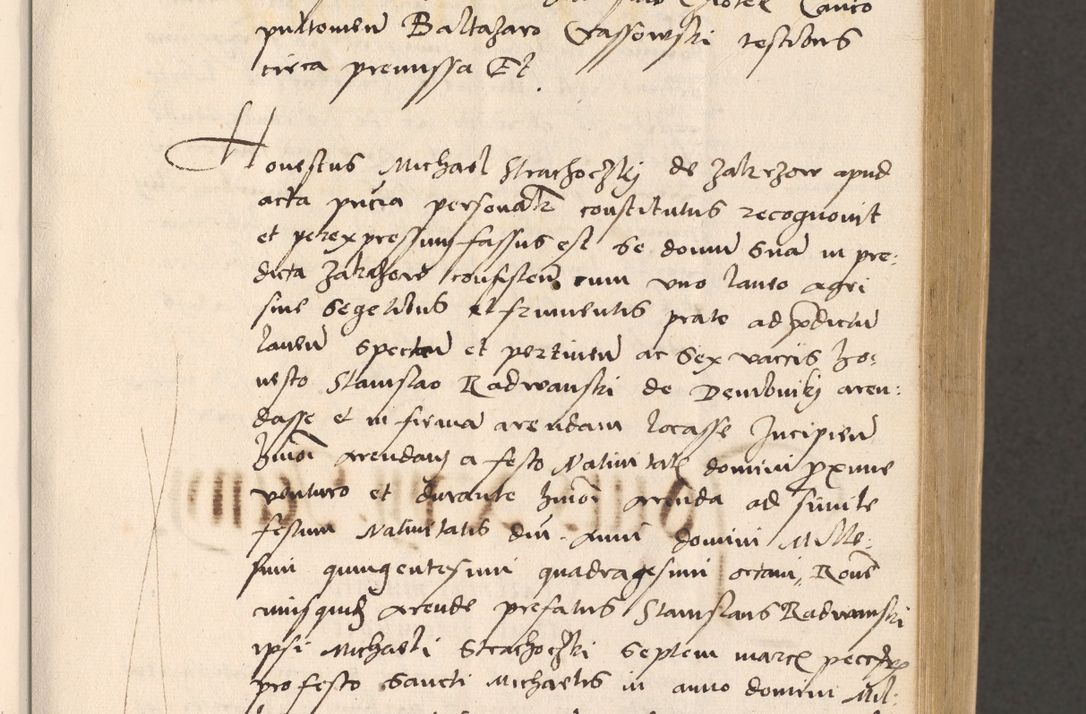 pultowien Baltazaro Crassowski testibus
circa premissa Et
Honestus Michael Strachoczki de Zalczow apud
acta pñcia personaltr constitutus recognovit
et per expressum fassus est se domum sua in pre:
dicta Zalczow consisten cum uno laneo agri
sine segetibus et frumentis prato ad pdictum
laneum spectan et pertinen ac sex vaccis Ho:
nesto Stanislao Radwanski de Dembniki aren:
dasse et in firma arendam locasse Incipien
hmōi arendam a festo Nativitatis domini pxime
venturo et durante hmōi arenda ad simile
festum Nativitatis dni anni domini Mille:
simi quingentesimi quadragesimi octavi,
cuiusquid arende prefatus Stanislaus Radwanski
ipsi Michaeli Strachoczki septem marcas
pro festo Sancti Michaelis in anno domini Mil: